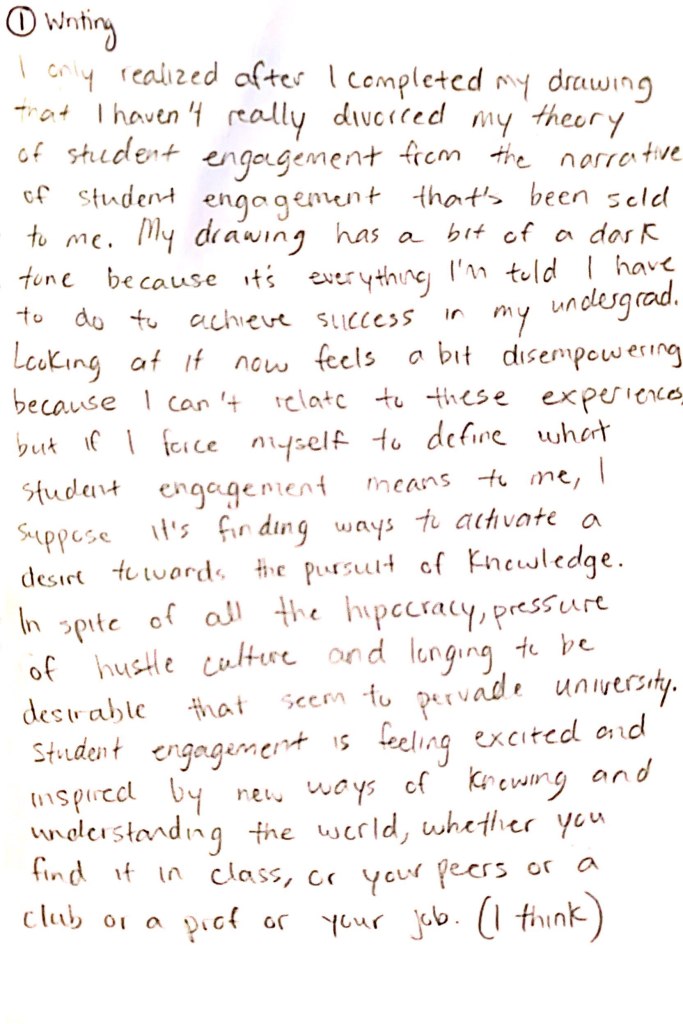 ① Writing
I only realized after I completed my drawing
that I haven't really divorced my theory
of student engagement from the narrative
of student engagement that's been sold
to me. My drawing has a bit of a dark
tone because it's everything I'm told I have
to do to achieve success in my undergrad.
Looking at it now feels a bit disempowering
because I can't relate to these experiences,
but if I force myself to define what
student engagement means to me, I
suppose it's finding ways to activate a
desire towards the pursuit of knowledge.
In spite of all the hipocracy, pressure
of hustle culture and longing to be
desirable that seem to pervade university.
Student engagement is feeling excited and
inspired by new ways of knowing and
understanding the world, whether you
find it in class, or your peers or a
club or a prof or your job. (I think)